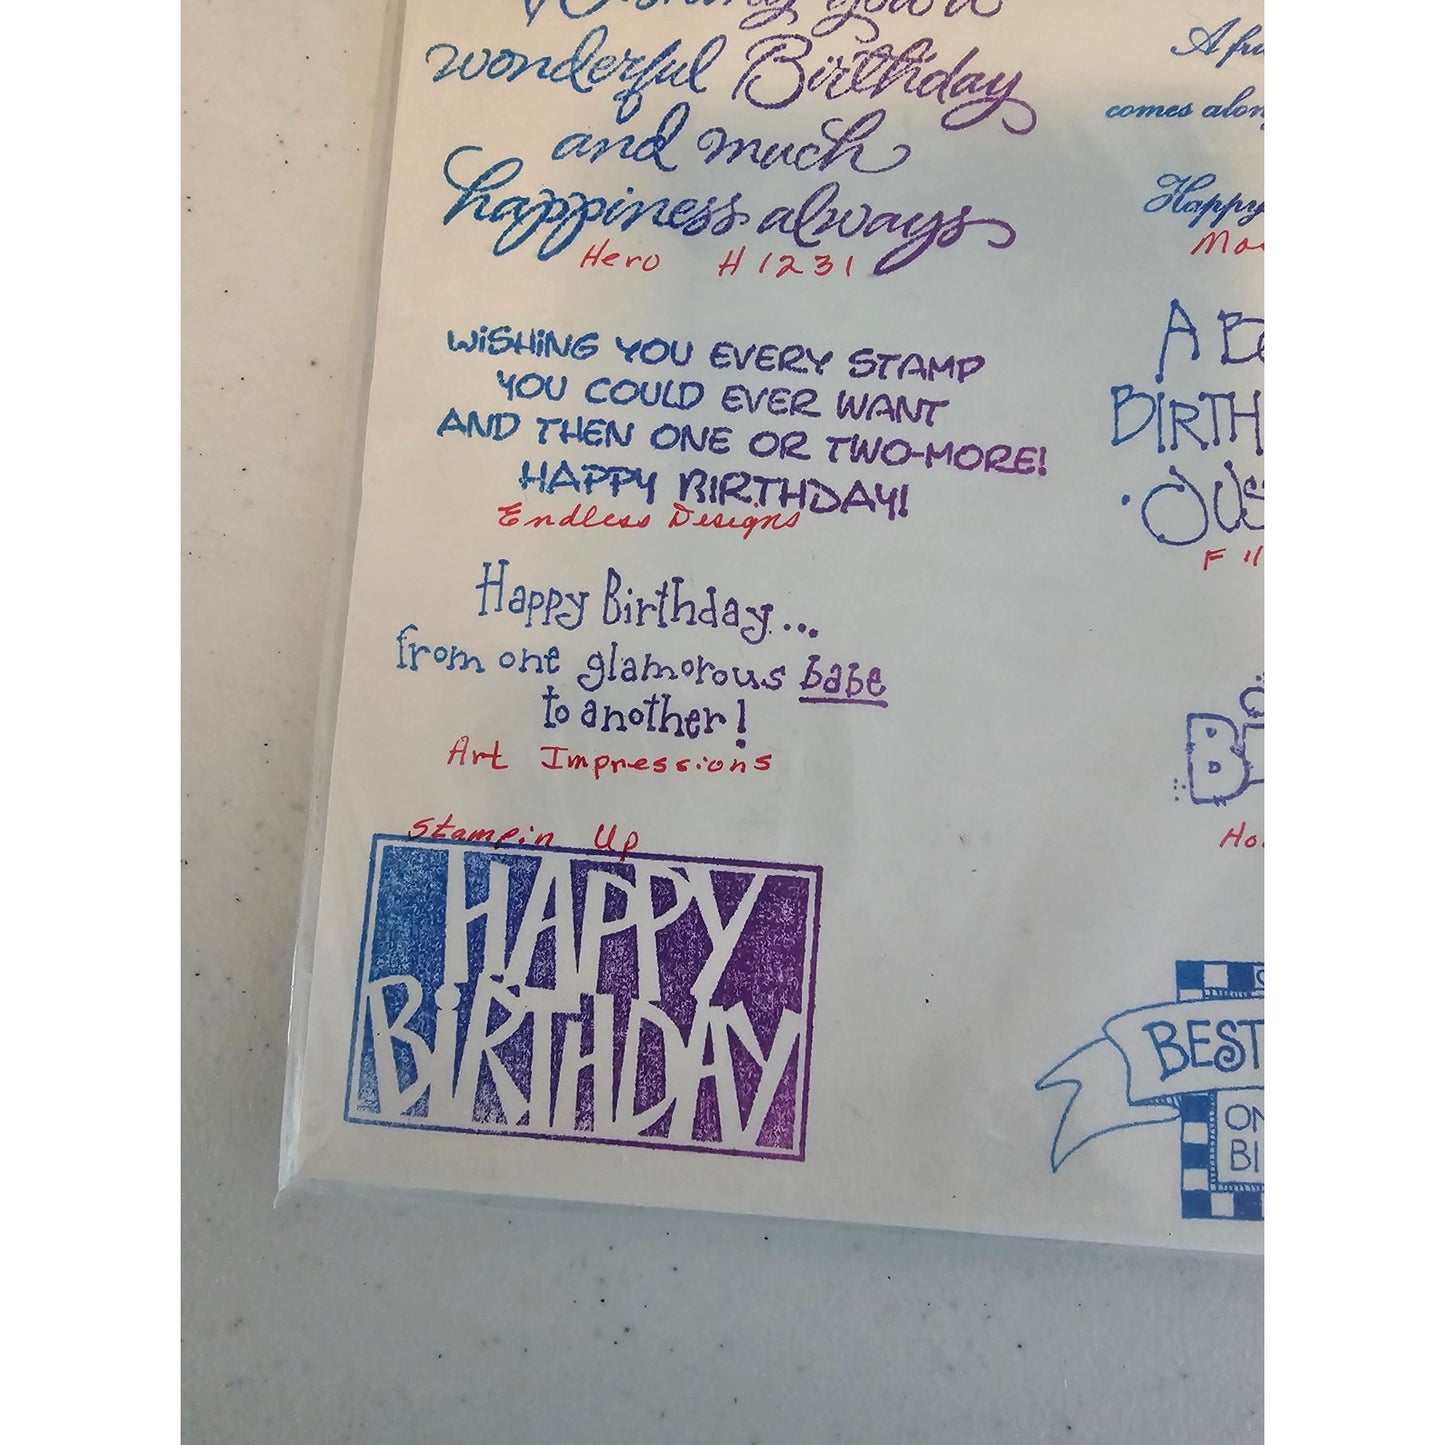 Wishing you a
wonderful Birthday
and much
happiness always
Hero H1231
WiSHiNG YOU EVERY STAMP
YOU COULD EVER WANT
AND THEN ONE OR TWO-MORE!
HAPPY BIRTHDAY!
Endless Designs
Happy Birthday...
from one glamorous babe
to another!
Art Impressions
Stampin Up
HAPPY
BiRTHDAY
A
comes
Happy
A
BiRTH
F 11
BEST